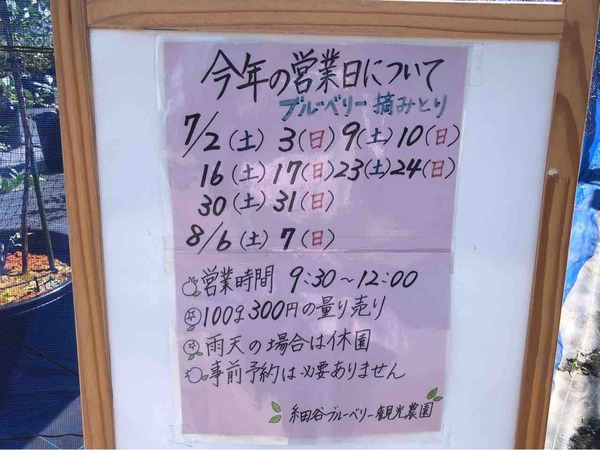 今年の営業日について
ブルーベリー摘みとり
7/2(土) 3(日) 9(土) 10(日)
16(土) 17(日) 23(土) 24(日)
30(土) 31(日)
8/6(土) 7(日)
営業時間 9:30〜12:00
100g300円の量り売り
雨天の場合は休園
事前予約は必要ありません
細谷ブルーベリー観光農園